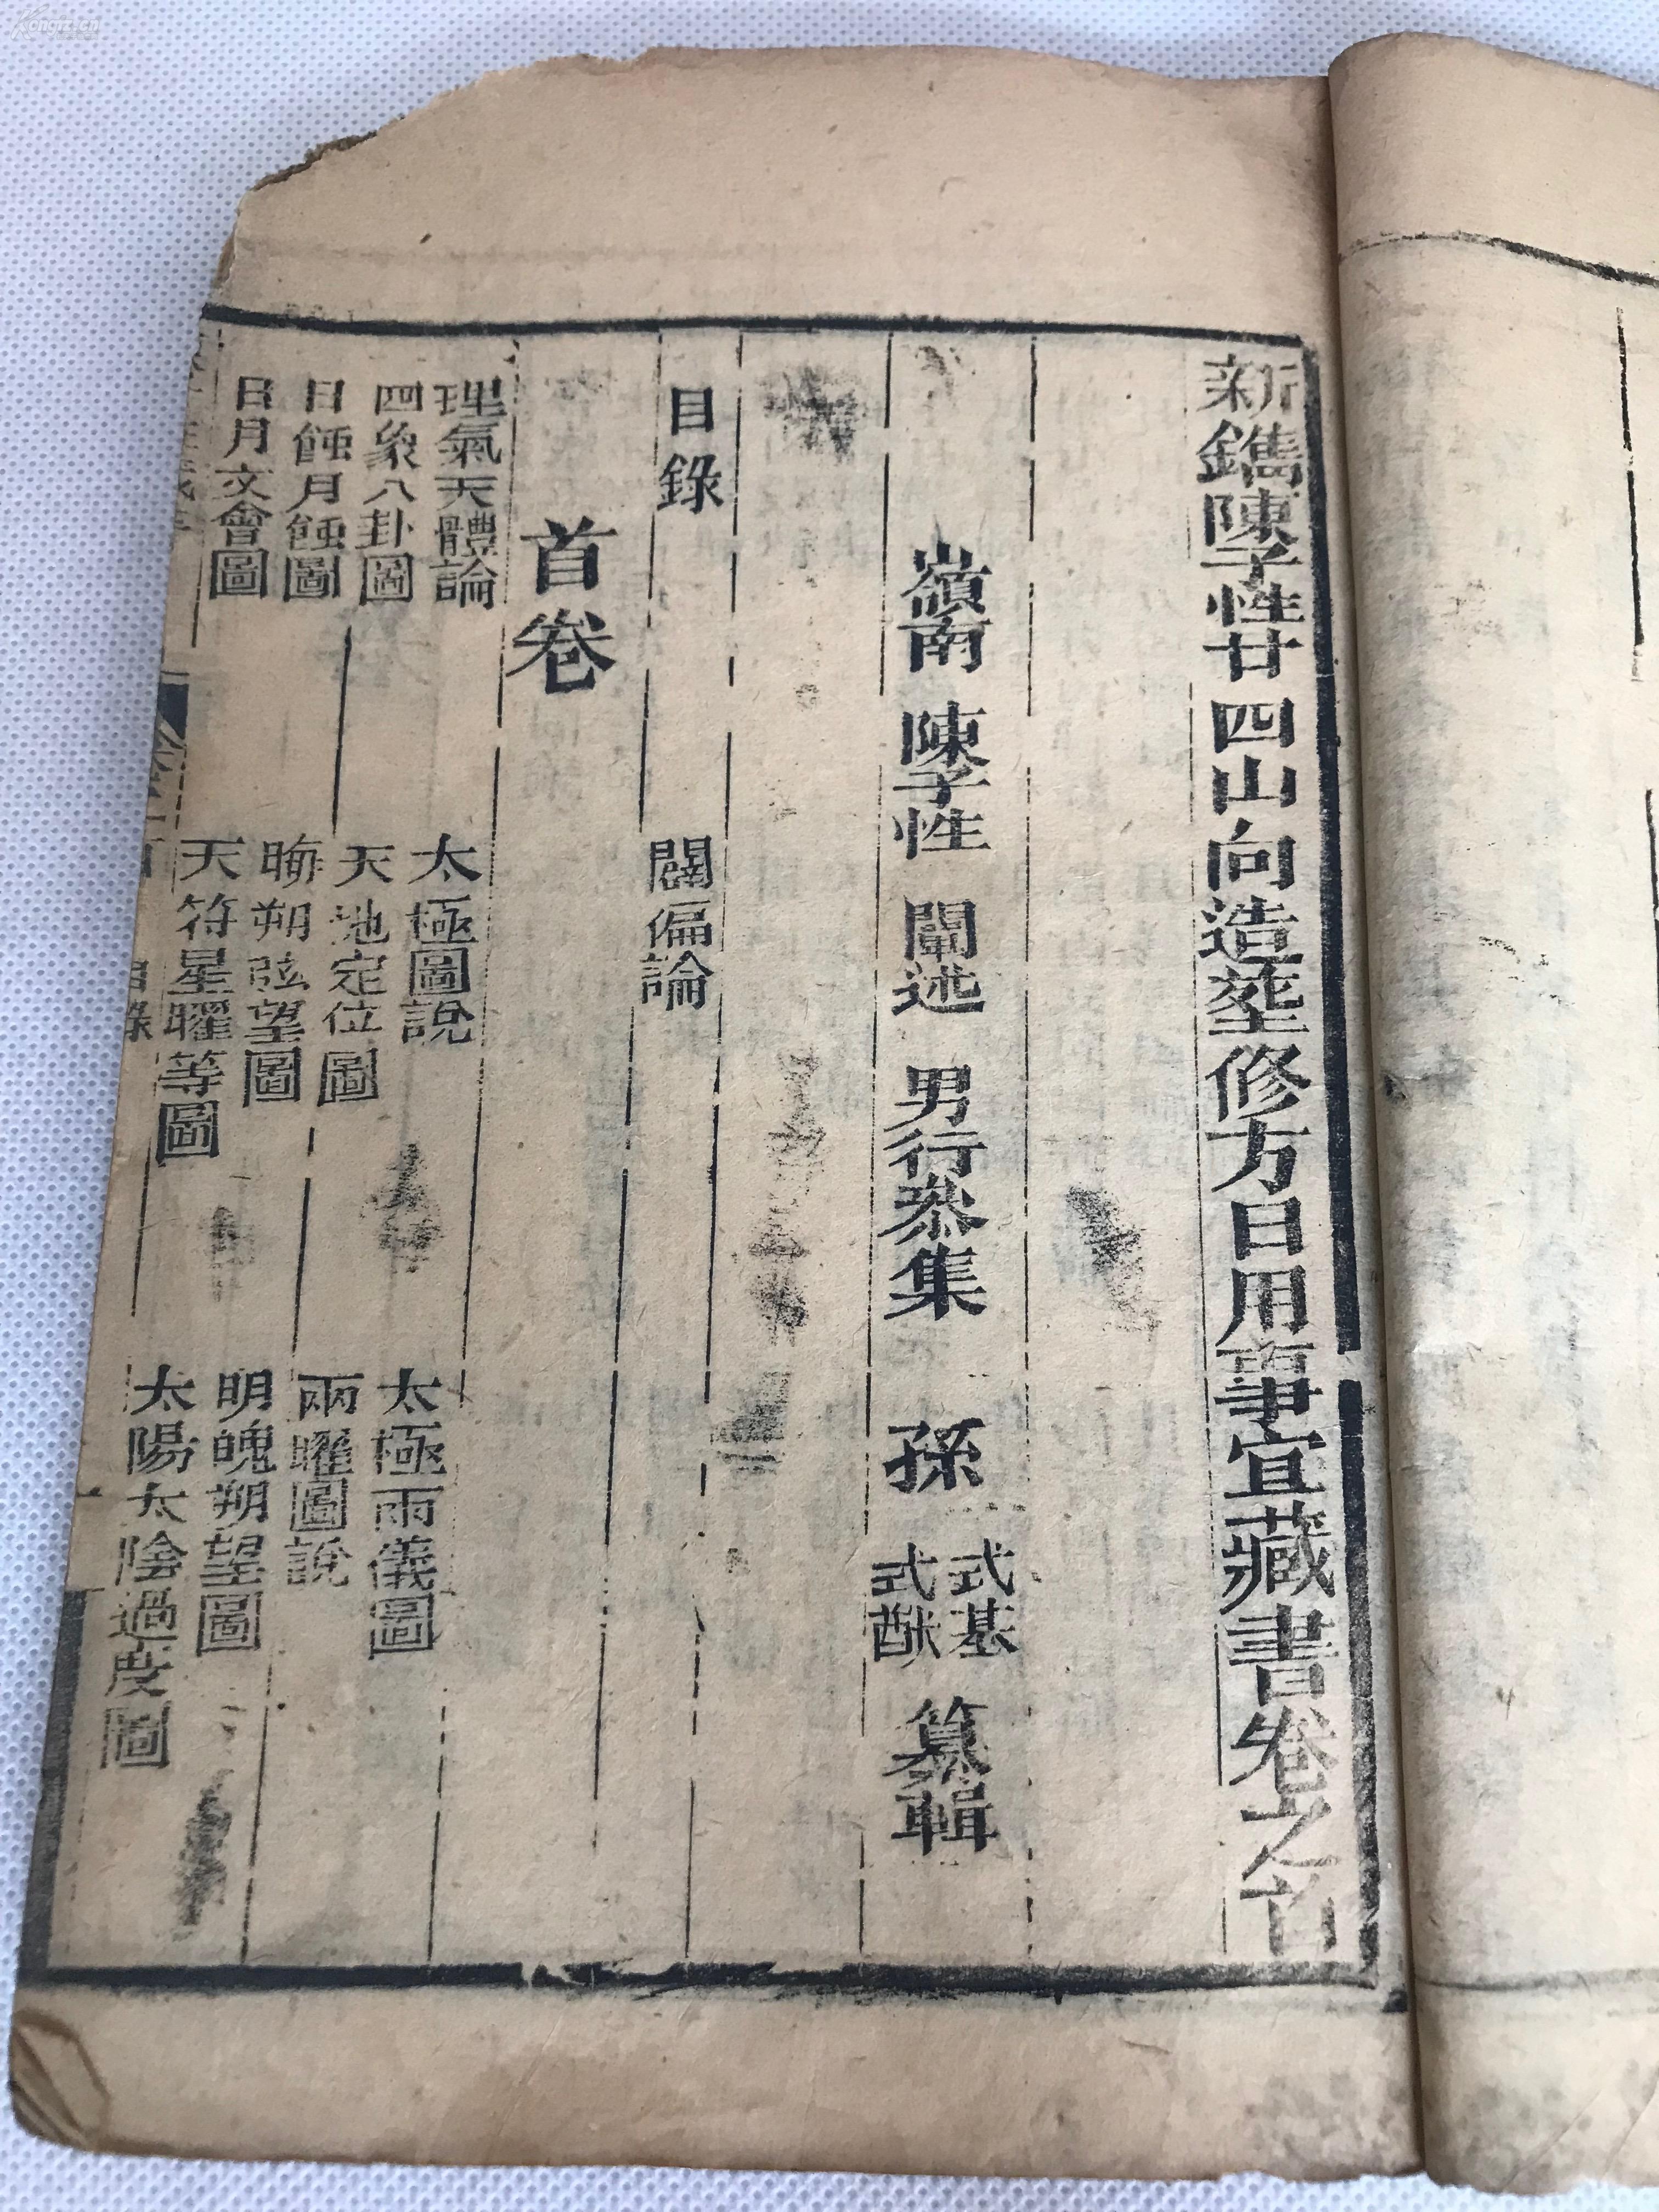 新鐫陳子性廿四山向造塟修方日用事宜藏書卷之首
嶺南 陳子性 闡述 男行叅集 孫 式基 式猷 纂輯
目錄 闢偏論
首卷
理氣天體論 太極圖說 太極兩儀圖
四象八卦圖 天地定位圖 兩曜圖說
日蝕月蝕圖 晦朔弦望圖 明魄朔望圖
日月交會圖 天符星曜等圖 太陽太陰過度圖
目錄
Kongfz.cn